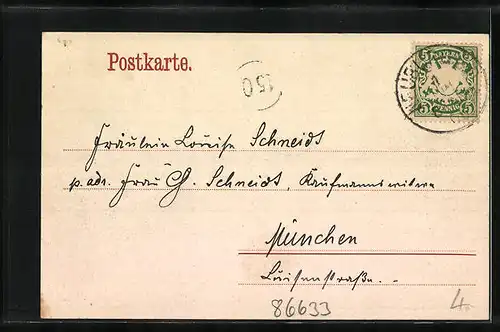 Postkarte.
150
BAYERN
5 5
5 PFENNIG 5
Fräulein Louise Schneidt
p. adr. Frau G. Schneidt, Kaufmannswitwe
München
Luisenstraße. -
86633
4.